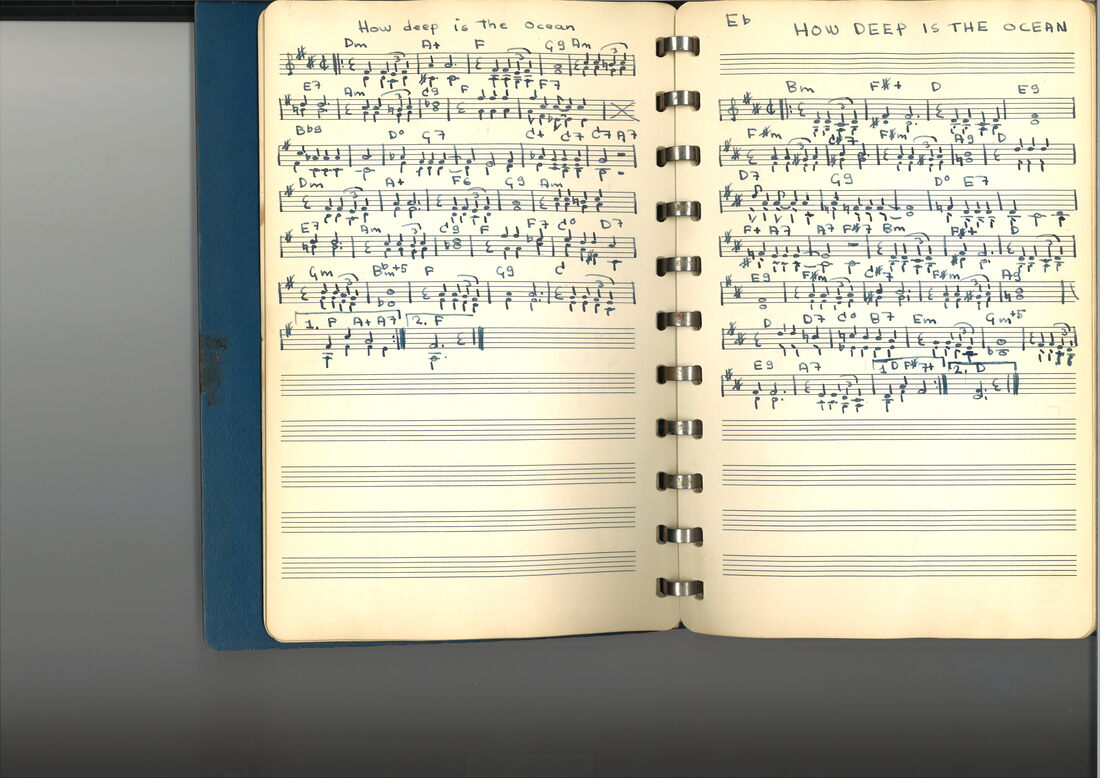 How deep is the Ocean
Dm A+ F G9 Am
E7 Am C9 F F7
Bb9 D° G7 C+ C7 C7 A7
Dm A+ F6 G9 Am
E7 Am C9 F F7 C° D7
Gm F G9 C
1. F A+ A7 2. F
Eb HOW DEEP IS THE OCEAN
Bm F#+ D E9
F#m C#7 F#m A9 D
D7 G9 D° E7
F+ A7 A7 F#7 Bm F#+ D
E9 F#m C#7 F#m A9
D D7 C° B7 Em Gm+5
E9 A7 1. D F#7+ 2. D